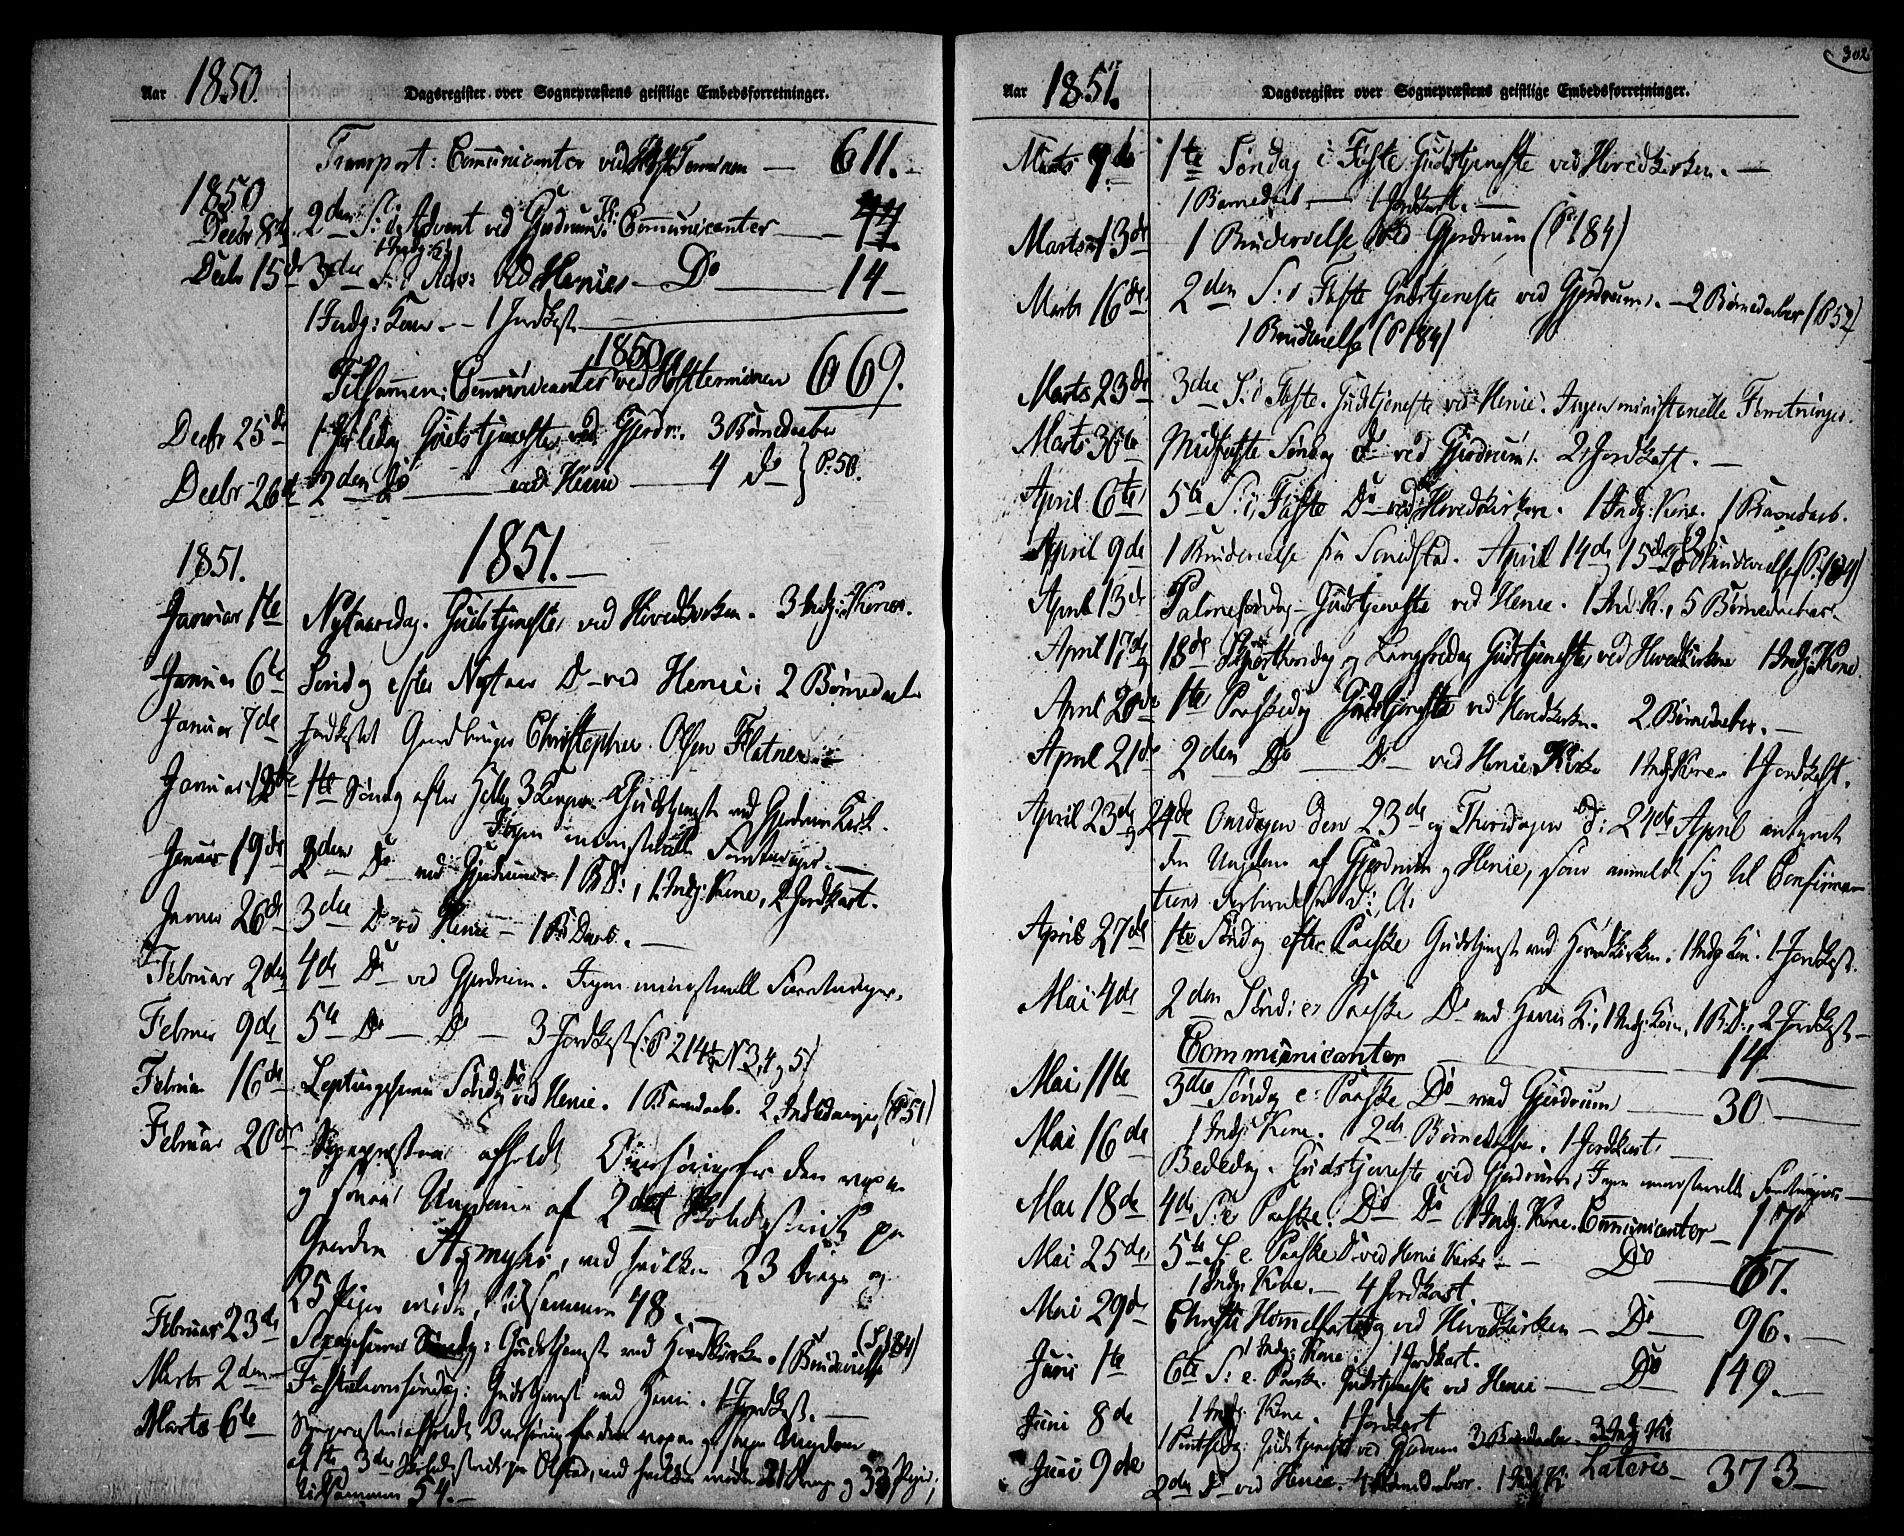 Aar 1850. Dagsregister over Sognepræstens geistlige Embedsforretninger.
Transport: Communicanter ved Høst Terminen — 611. —
1850
Decbr 8de 2den S: i Advent ved Gjerdrum. Communicanter — 44
1 Indg: K:
Decbr 15de 3die S: i Adv: ved Henies — Do — 14 —
1 Indg: Kone. — 1 Jordkast.
1850
Tilsammen: Communicanter ved Høstterminen 669.
Decbr 25de 1 Juledag Gudstjeneste ved Gjerdr: 3 Børnedaaber
Decbr 26de 2den Do — ved Henie — 4 Do } P. 50.
1851. 1851. —
Januar 1te Nytaarsdag. Gudstjeneste ved Hovedkirken. 3 Indg: Koner.
Januar 6te Sønd g efter Nytaar Do — ved Henie: 2 Børnedaab
Januar 7de Jordkastet Christopher Olsen Flatner
Januar 1te Søndag efter Hellig 3 Konger Gudstjenest ved Gjerdrum Kirk.
Ingen ministerielle Forretninger.
Januar 19de 2den Do ved Gjerdrum 1 B D:, 1 Indg: Kone, 2 Jordkast.
Januar 26de 3die Do ved Henie — 1 B Daab. —
Februar 2den 4de Do ved Gjerdrum. Ingen ministerielle Forretninger.
Februar 9de 5te Do — Do — 3 Jordkast (: P 214 N 3, 4 og 5)
Februar 16de Søndag Do ved Henie. 1 Barnedaab. 2 Indledninger, (P. 51)
Februar 20de Sognepræsten afholdt Overhøring for den voxne
og Ungdom af 2det Skoledistrikt paa
Gaarden Asmyhr, ved hvilken 23 Drenge og
25 Piger mødte, tilsammen 48. —
Februar 23de Søndag: Gudstjeneste ved Hovedkirken. 1 Brudevielse (P 184)
Marts 2den Fastelavnssøndag: Gudstjenest ved Henie. 1 Jordkast. —
Marts 6te Sognepræsten afholdt Overhøring for den voxne og Ungdom
af 1te og 3die Skoledistrikt paa Olstad, ved hvilken mødte 21 Drenge og 33 Piger,
tilsammen 54. —
302
Aar 1851. Dagsregister over Sognepræstens geistlige Embedsforretninger.
Marts 9de 1te Søndag i Faste Gudstjeneste ved Hovedkirken. —
1 Barnedaab — 1 Jordkast. —
Marts 13de 1 Brudevielse ved Gjerdrum (P 184)
Marts 16de 2den S: i Faste Gudstjeneste ved Gjerdrum. — 2 Børnedaaber (P 52)
1 Brudevielse (P 184)
Marts 23de 3die S: i Faste. Gudstjeneste ved Henie. Ingen ministerielle Forretninger.
Marts 30te Midfaste Søndag do ved Gjerdrum. 2 Jordkast. —
April 6te 5te S: i Faste Do — ved Hovedkirken. 1 Indg: Kone. 1 Barnedaab.
April 9de 1 Brudevielse fra April 14de og 15de 2 Brudevielser (P. 184)
April 13de Palmesøndag — Gudstjeneste ved Henie. 1 Ind: K., 5 Børnedaaber.
April 17de og 18de Skjærthorsdag og Langfredag Gudstjeneste ved Hovedkirken 1 Indg: Kone
April 20de 1te Paaskedag Gudstjeneste ved Hovedkirken. 2 Børnedaaber. —
April 21de 2den Do — Do — ved Henie Kirke 1 Indg: Kone 1 Jordkast.
April 23de og 24de Onsdagen den 23de og Thorsdagen d: 24de April antegnet
den Ungdom af Gjerdrum og Henie, som anmeldte sig til Confirma-
tions Forberedelse d: A:
April 27de 1te Søndag efter Paaske Gudstjenest ved Hovedkirken. 1 Indg Kon. 1 Jordkast.
Mai 4de 2den Sønd: e: Paaske Do — ved Henie K:, 1 Indg: Kone, 1 B. D:, 2 Jordkast —
Communicanter — 14 —
Mai 11te 3die Søndag e: Paaske Do — ved Gjerdrum — 30 —
1 Indg: Kone. 2de Børnedaaber. 1 Jordkast.
Mai 16de Bededag. Gudstjeneste ved Gjerdrum, Ingen ministerielle Forretninger —
Mai 18de 4de S: e Paaske: Do Do 1 Indg. Kone. Communicanter — 17
Mai 25de 5te S: e. Paaske Do ved Henie Kirke — Do — 67.
1 Indg: Kone. — 4 Jordkast.
Mai 29de Christi Himmelfartsdag ved Hovedkirken — Do — 96. —
1 Indg: Kone 1 Jordkast.
Juni 1te 6te S: e. Paaske. Gudstjeneste ved Henie — Do — 149. —
1 Indg. Kone. 1 Jordkast
Juni 8de 1 Pintsedag: Gudstjeneste ved Gjerdrum 3 Børnedaaber. 3 Indg Ko
Juni 9de 2den Do ved Henie. 4 Børnedaaber. 1 Ind K Lateris — 373 —